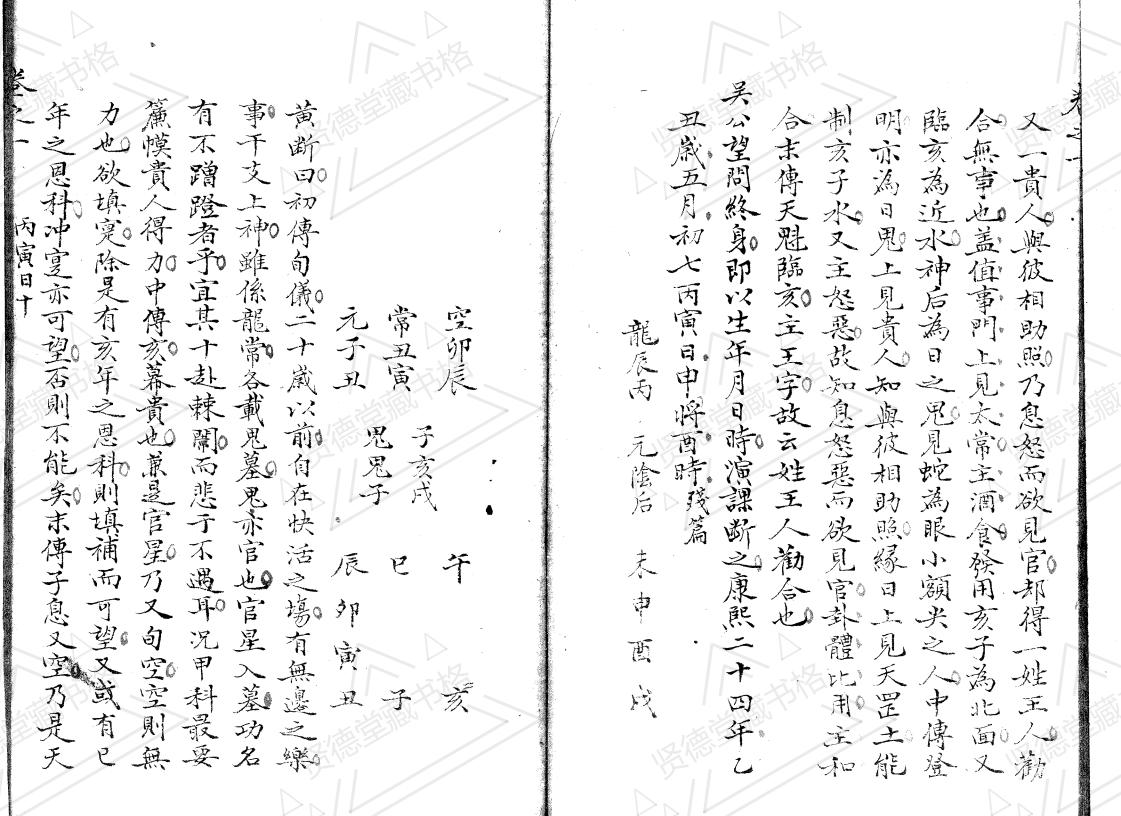 卷之一
又一貴人與彼相助照乃息怒而欲見官却得一姓王人勸
合無事也盖值事門上見太常主酒食發用亥子為北面又
臨亥為近水神后為日之鬼見蛇為眼小額尖之人中傳登
明亦為日鬼上見貴人知與彼相助照緣日上見天罡土能
制亥子水又主怒惡故知息怒惡而欲見官卦體比用主和
合末傳天魁臨亥主王字故云姓王人勸合也
吴公望問終身即以生年月日時演課斷之康熙二十四年乙
丑歲五月初七丙寅日申將酉時 殘篇
龍辰丙 元陰后 未申酉戌
空卯辰 午 亥
常丑寅 子亥戌 巳 子
元子丑 鬼鬼子 辰卯寅丑
黃斷曰初傳旬儀二十歲以前自在快活之場有無邊之樂
事干支上神雖係龍常各載鬼墓鬼亦官也官星入墓功名
有不蹭蹬者乎宜其十赴棘闈而悲于不遇耳况甲科最要
簾幙貴人得力中傳亥幕貴也兼是官星乃又旬空空則無
力也欲填寔除是有亥年之恩科則填補而可望又或有巳
年之恩科冲寔亦可望否則不能矣末傳子息又空乃是天
卷之一 丙寅日十
贤德堂藏书格